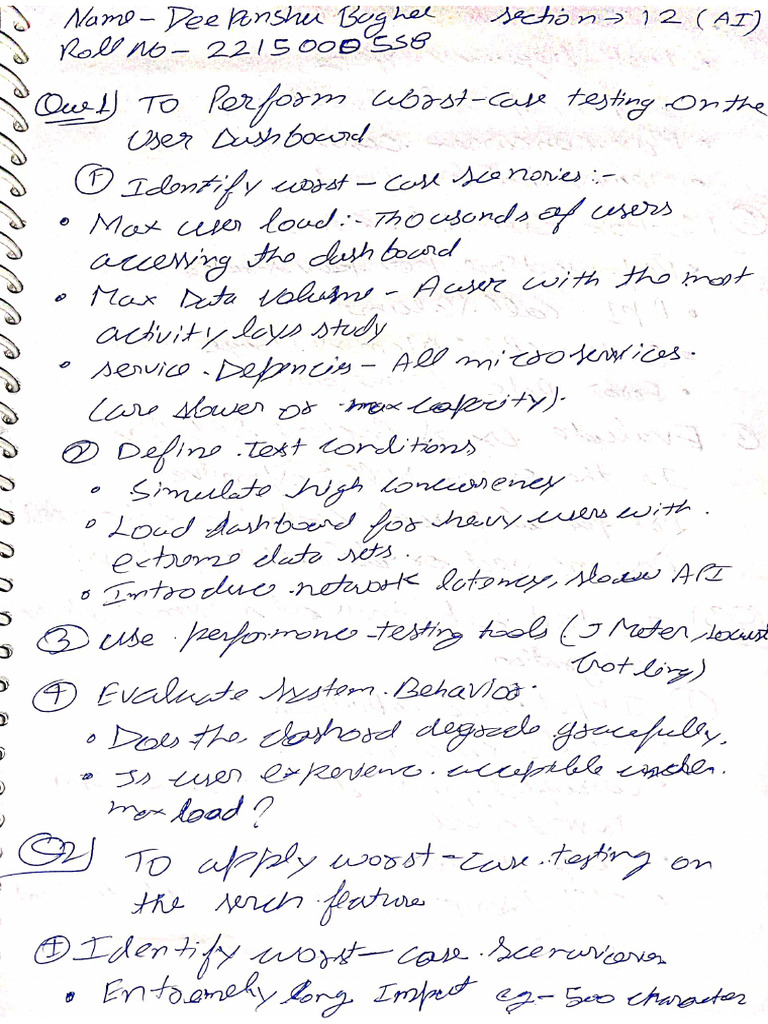 Name - Deepanshu Baghel section → 12 (AI)
Roll No - 2215000558
Que 1) To Perform worst-case testing on the
User Dashboard
① Identify worst - case scenories :-
• Max user load :- Thousands of users
accessing the dashboard
• Max Data Volume - A user with the most
activity study
• Service . Depencies - All microservices .
(are slower or max capacity).
② Define . test conditions
• Simulate high concurrency
• Load dashboard for heavy users with .
extreme data sets .
• Introduce . network latency, slower API
③ use . performance testing tools (J Meter, Locust
④ Evaluate system . Behavior .
• Does the dashboard degrade gracefully.
• Is user experience . acceptible under .
max load ?
Q2) To apply worst - case . testing on
the serch feature
① Identify worst - case .
• Extremely long Input eg - 500 character